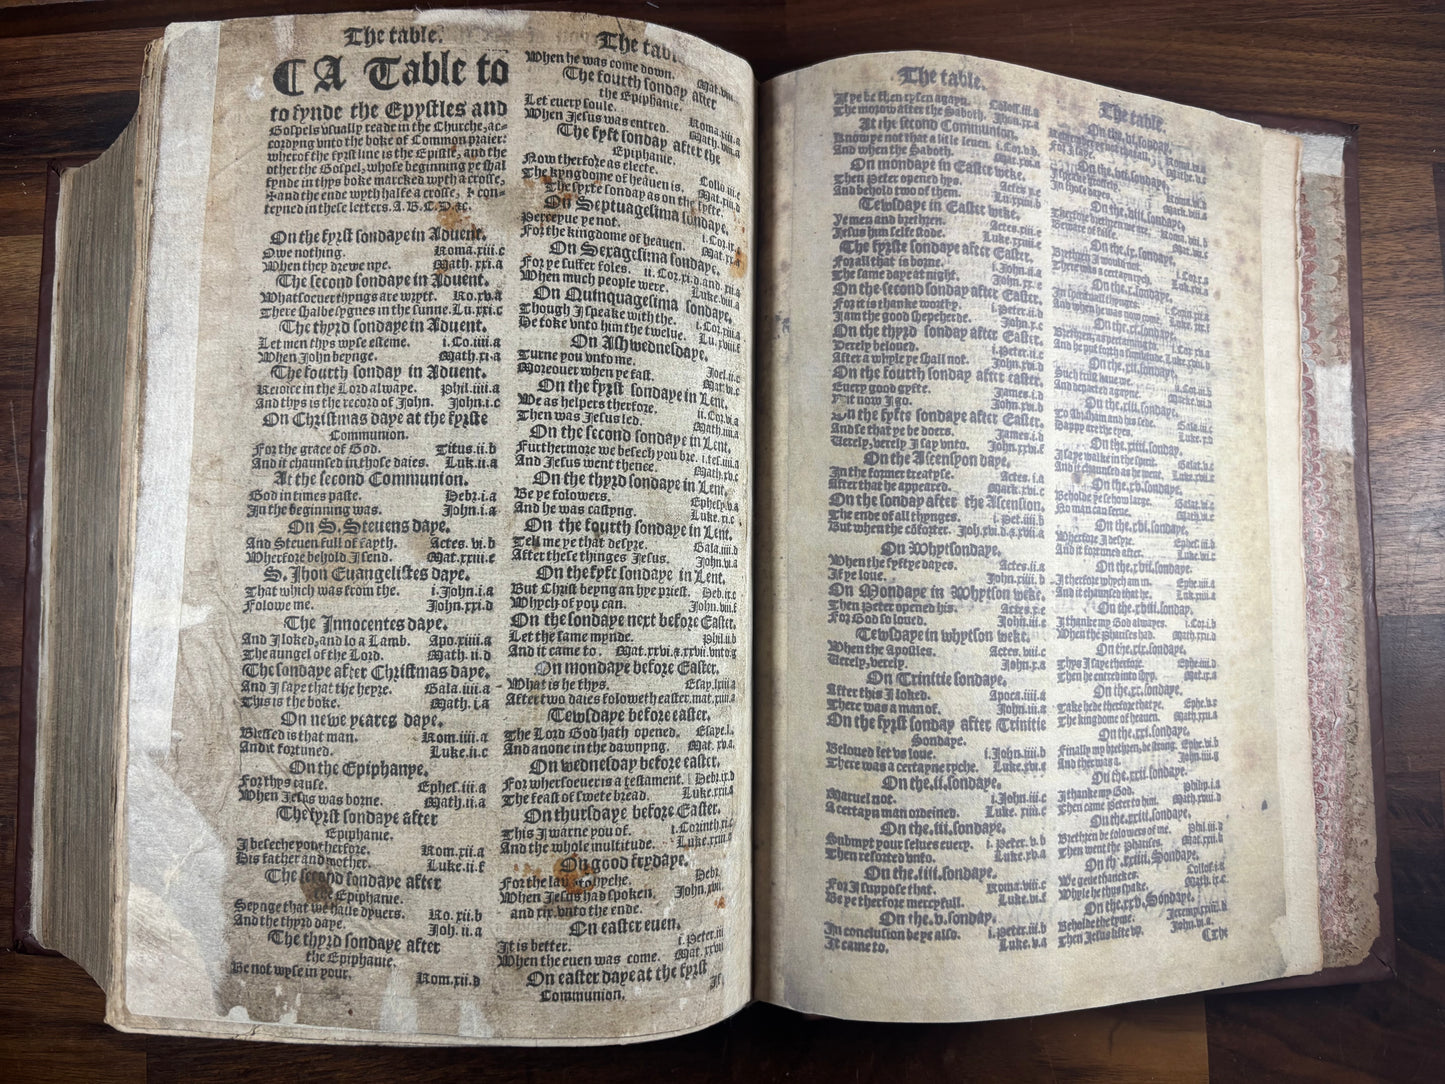 The table.
¶ A Table to
to fynde the Epystles and
Gospels vsually reade in the Churche, ac-
cordyng vnto the boke of Common praier:
wherof the fyrst line is the Epistle, and the
other the Gospel, whose beginning ye shal
fynde in thys boke marcked wyth a crosse,
✠ and the ende wyth halfe a crosse, ⊢ con-
teyned in these letters. A. B. C. D. &c.
On the fyrst sondaye in Aduent.
Owe nothing. Roma.xiii.c
When they drewe nye. Math.xxi.a
The second sondaye in Aduent.
Whatsoeuer thyngs are wrytt. Ro.xv.a
There shalbe sygnes in the sunne. Lu.xxi.c
The thyrd sondaye in Aduent.
Let men thys wyse esteme. i.Co.iiii.a
When John beynge. Math.xi.a
The fourth sonday in Aduent.
Reioice in the Lord alwaye. Phil.iiii.a
And thys is the record of John. John.i.c
On Christmas daye at the fyrste
Communion.
For the grace of God. Titus.ii.b
And it chaunsed in those daies. Luk.ii.a
At the second Communion.
God in times paste. Hebr.i.a
In the beginning was. John.i.a
On S. Steuens daye.
And Steuen full of fayth. Actes.vi.b
Wherfore behold I send. Mat.xxiii.e
S. Jhon Euangelistes daye.
That which was from the. i.John.i.a
Folowe me. John.xxi.d
The Innocentes daye.
And I loked, and lo a Lamb. Apo.xiiii.a
The aungel of the Lord. Math.ii.d
The sondaye after Christmas daye.
And I saye that the heyre. Gala.iiii.a
This is the boke. Math.i.a
On newe yeares daye.
Blessed is that man. Rom.iiii.a
And it fortuned. Luke.ii.c
On the Epiphanye.
For thys cause. Ephes.iii.a
When Jesus was borne. Math.ii.a
The fyrst sondaye after
Epiphanie.
I beseche you therfore. Rom.xii.a
His father and mother. Luke.ii.f
The second sondaye after
the Epiphanie.
Seynge that we haue dyuers. Ro.xii.b
And the thyrd daye. Joh.ii.a
The thyrd sondaye after
the Epiphanie.
Be not wyse in your. Rom.xii.d
The table.
When he was come down. Mat.viii.
The fourth sonday after
the Epiphanie.
Let euery soule. Roma.xiii.a
When Jesus was entred. Math.viii.
The fyft sonday after the
Epiphanie.
Now therfore as electe. Collo.iii.c
The kyngdome of heauen is. Mat.xiii.d
The syxte sonday as on the fyfte.
On Septuagesima sondaye.
Perceyue ye not. i.Cor.ix.
For the kingdome of heauen. Mat.xx.a
On Sexagesima sondaye.
For ye suffer foles. ii.Cor.xi.d.and.xii.a
When much people were. Luke.viii.a
On Quinquagesima sondaye.
Though I speake with the. i.Cor.xiii.a
He toke vnto him the twelue. Lu.xviii.f
On Ashwednesdaye.
Turne you vnto me. Joel.ii.c
Moreouer when ye fast. Mat.vi.c
On the fyrst sondaye in Lent.
We as helpers therfore. ii.Cor.vi.a
Then was Jesus led. Mat.iiii.a
On the second sondaye in Lent.
Furthermore we besech you bre. i.tes.iiii.a
And Jesus went thence. Math.xv.c
On the thyrd sondaye in Lent.
Be ye folowers. Ephes.v.a
And he was castyng. Luke.xi.c
On the fourth sondaye in Lent.
Tell me ye that desyre. Gala.iiii.d
After these thinges Jesus. John.vi.a
On the fyft sondaye in Lent.
But Christ beyng an hye priest. Heb.ix.c
Whych of you can. John.viii.f
On the sondaye next before Easter.
Let the same mynde. Phil.ii.b
And it came to. Mat.xxvi.&.xxvii.vnto.g
On mondaye before Easter.
What is he thys. Esay.lxiii.a
After two daies foloweth easter. mat.xiiii.a
Tewsdaye before easter.
The Lord God hath opened. Esaye.l.
And anone in the dawnyng. Mat.xv.a.
On wednesday before easter.
For whersoeuer is a testament. Hebr.ix.d
The feast of swete bread. Luke.xxii.a
On thursdaye before Easter.
This I warne you of. i.Corinth.xi.c
And the whole multitude. Luke.xxiii.
On good frydaye.
For the law whyche. Hebr.
When Jesus had spoken. John.xviii.
and xix.vnto the ende.
On easter euen.
It is better. i.Peter.iii
When the euen was come. Mat.xxvii
On easter daye at the fyrst
Communion.
If
The table.
If ye be then rysen agayn. Coloss.iii.a
The morow after the Saboth. Jhon.xx.a
At the second Communion.
Knowe ye not that a litle leuen. i.Cor.v.b.
And when the Saboth. Mat.xvi.a
On mondaye in Easter weke.
Then Peter opened hys. Actes.x.e
And behold two of them. Lu.xxiiii.b
Tewsdaye in Easter weke.
Ye men and brethren.
Jesus him selfe stode. Luke.xxiiii.e
The fyrste sondaye after Easter.
For all that is borne. i.John.v.a
The same daye at night. John.xx.e
On the second sonday after Easter.
For it is thanke worthy. i.Peter.ii.d
I am the good shepeherde. John.x.c
On the thyrd sonday after Easter.
Derely beloued. i.Peter.ii.c
After a whyle ye shall not. John.xvi.d
On the fourth sonday after easter.
Euery good gyfte. James.i.d
But now I go. John.xvi.b
On the fyfte sondaye after Easter.
And se that ye be doers. James.i.d
Verely, verely I say vnto. John.xvi.f
On the Ascensyon daye.
In the former treatyse. Actes.i.a
After that he appeared. Mark.xvi.c
On the sonday after the Ascension.
The ende of all thynges. i.Pet.iiii.b
But when the cōforter. Joh.xv.d.&.xvi.a
On Whytsondaye.
When the fyftye dayes. Actes.ii.a
If ye loue. John.xiiii.b
On Mondaye in Whytson weke.
Then Peter opened his. Actes.x.e
For God so loued. John.iii.c
Tewsdaye in whytson weke.
When the Apostles. Actes.viii.c
Verely, verely. John.x.a
On Trinitie sondaye.
After this I loked. Apoca.iiii.a
There was a man of. John.iii.a
On the fyrst sonday after Trinitie
Sondaye.
Beloued let vs loue. i.John.iiii.b
There was a certayne ryche. Luke.xvi.e
On the.ii.sondaye.
Maruel not. i.John.iii.c
A certayn man ordeined. Luke.xiiii.c
On the.iii.sondaye.
Submyt your selues euery. i.Peter.v.b
Then resorted vnto. Luke.xv.a
On the.iiii.sondaye.
For I suppose that. Roma.viii.c
Be ye therfore mercyfull. Luke.vi.f
On the.v.sonday.
In conclusion be ye also. i.Peter.iii.b
It came to. Luke.v.a
The table.
On the.vi.sondaye.
Roma.vi.a
On the.vii.sondaye.
In those dayes. Mark.viii.a
On the.viii.sondaye.
Therfore brethren we. Roma.viii.b
Beware of false.
On the.ix.sondaye.
Brethren I would not. i.Cor.x.a
There was a certayn rych. Luk.xvi.a
On the.x.sondaye.
And when he was now come. Luk.xix.f
On the.xi.sondaye.
Brethren, as pertaining to. i.Cor.xv.a
And he put forth a similitude. Luk.xviii.
On the.xii.sondaye.
Such trust haue we. ii.Cor.iii.b
And departed agayne. Mark.vii.d
On the.xiii.sondaye.
To Abraham and his sede. Gala.iii.c
Happy are the eyes. Luke.x.d
On the.xiiii.sondaye.
I saye walke in the spirit. Galat.v.c
And it chaunsed as he went. Luke.xvii.c
On the.xv.sondaye.
Beholde ye se how large. Galat.vi.c
No man can serue. Math.vi.c
On the.xvi.sondaye.
Wherfore I desyre. Ephes.iii.b
And it fortuned after. Luke.vii.c
On the.xvii.sondaye.
I therfore whych am in. Ephe.iiii.a
And it chaunsed that he. Luk.xiiii.a
On the.xviii.sonday.
I thanke my God alwayes. i.Cor.i.b
When the Pharises had. Math.xxii.d
On the.xix.sondaye.
Thys I saye therfore. Ephe.iiii.d
Then he entred into shyp. Mat.ix.a
On the.xx.sondaye.
Take hede therfore that ye. Ephe.v.c
The kingdome of heauen. Math.xxii.a
On the.xxi.sondaye.
Finally my brethren, be strong. Ephe.vi.b
And there was a. John.iiii.g
On the.xxii.sondaye.
I thanke my God. Philip.i.a
Then came Peter to him. Math.xviii.d
On the.xxiii.sondaye.
Brethren be folowers of me. Phil.iii.d
Then went the Pharises. Mat.xxii.b
On the.xxiiii.Sondaye.
We geue thanckes. Collos.i.a
Whyle he thus spake. Math.ix.c
On the.xxv.Sondaye.
Beholde the tyme. Jeremy.xxiii.b
Then Jesus lifte vp. John.vi.a
The